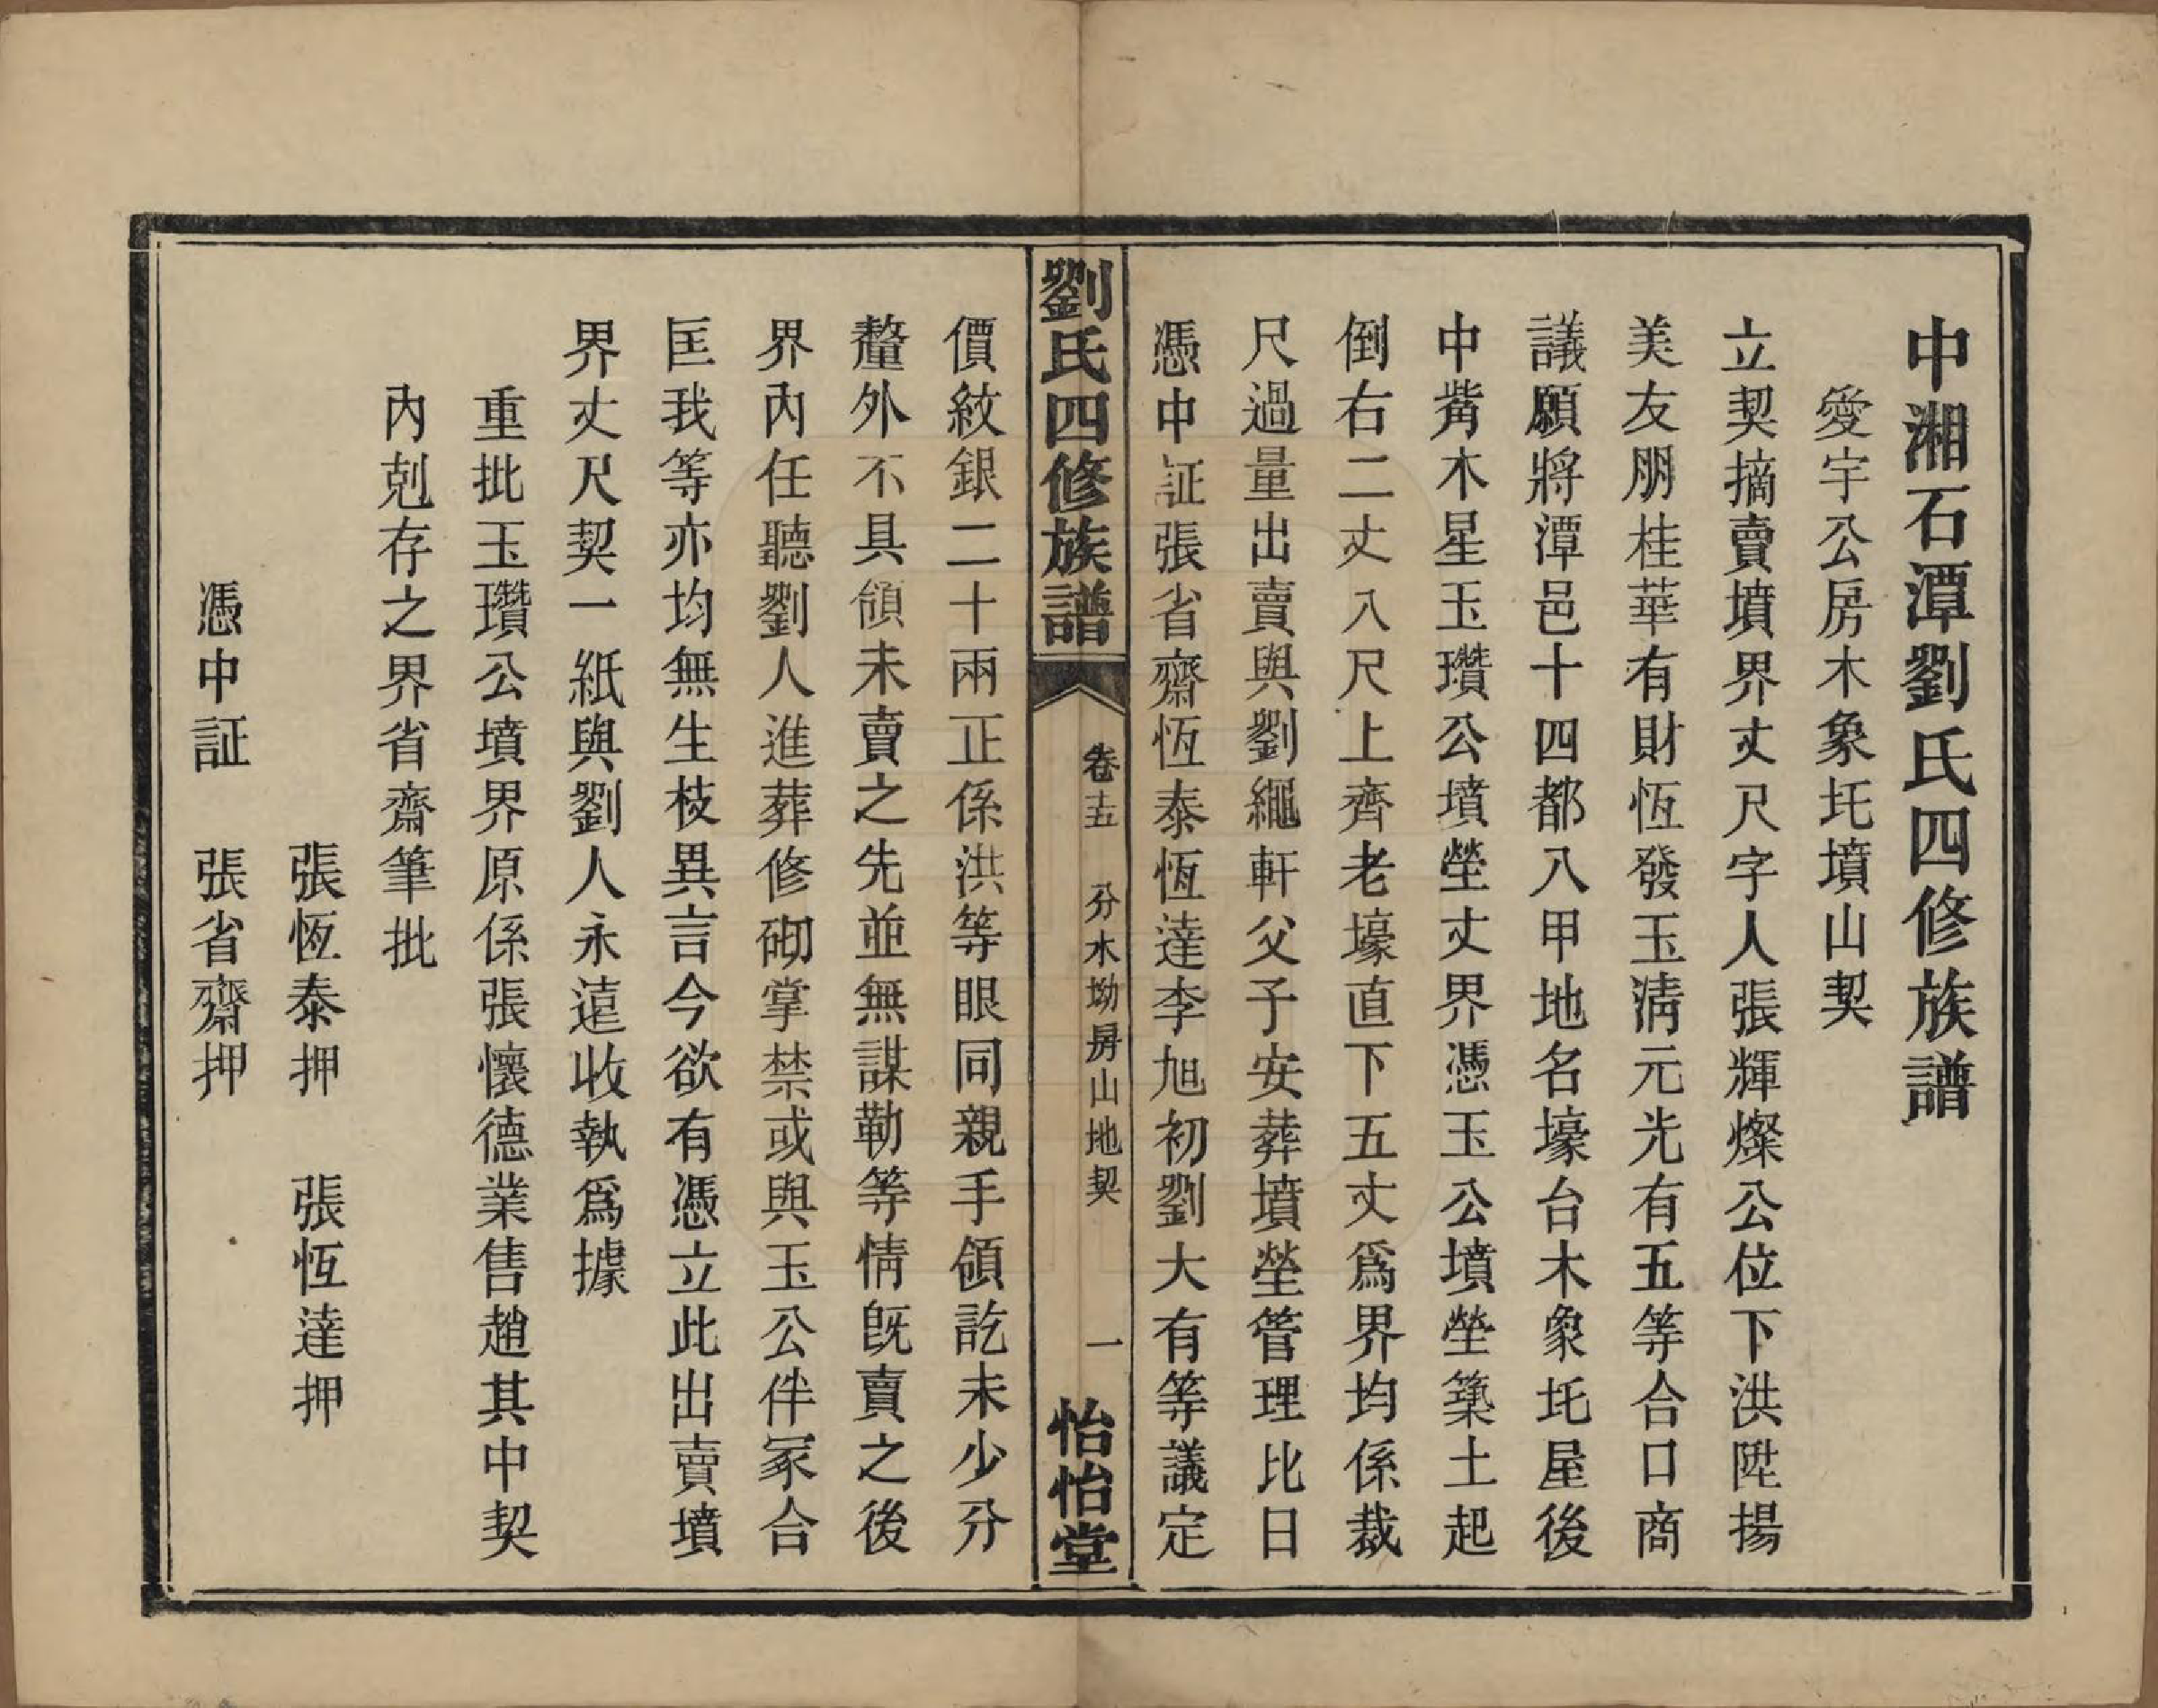 中湘石潭劉氏四修族譜
愛宇公房木象坉墳山契
立契摘賣墳界丈尺字人張輝燦公位下洪陞揚
美友朋桂華有財恆發玉清元光有五等合口商
議願將潭邑十四都八甲地名壕台木象坉屋後
中觜木星玉瓚公墳塋丈界憑玉公墳塋築土起
倒右二丈八尺上齊老壕直下五丈爲界均係裁
尺過量出賣與劉繩軒父子安葬墳塋管理比日
憑中証張省齋恆泰恆達李旭初劉大有等議定
劉氏四修族譜
卷十五 分水坳房山地契
一
怡怡堂
價紋銀二十兩正係洪等眼同親手領訖未少分
釐外不具領未賣之先並無謀勒等情既賣之後
界內任聽劉人進葬修砌掌禁或與玉公伴冢合
匡我等亦均無生枝異言今欲有憑立此出賣墳
界丈尺契一紙與劉人永遠收執爲據
重批玉瓚公墳界原係張懷德業售趙其中契
內剋存之界省齋筆批
張恆泰押 張恆達押
憑中証 張省齋押